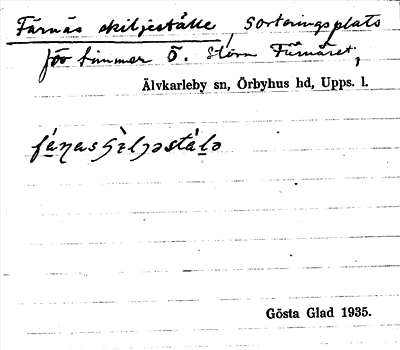 Färnäs skiljeställe, Sorteringsplats
för timmer Ö. Stora Färnäret,
Älvkarleby sn, Örbyhus hd, Upps. l.
Gösta Glad 1935.